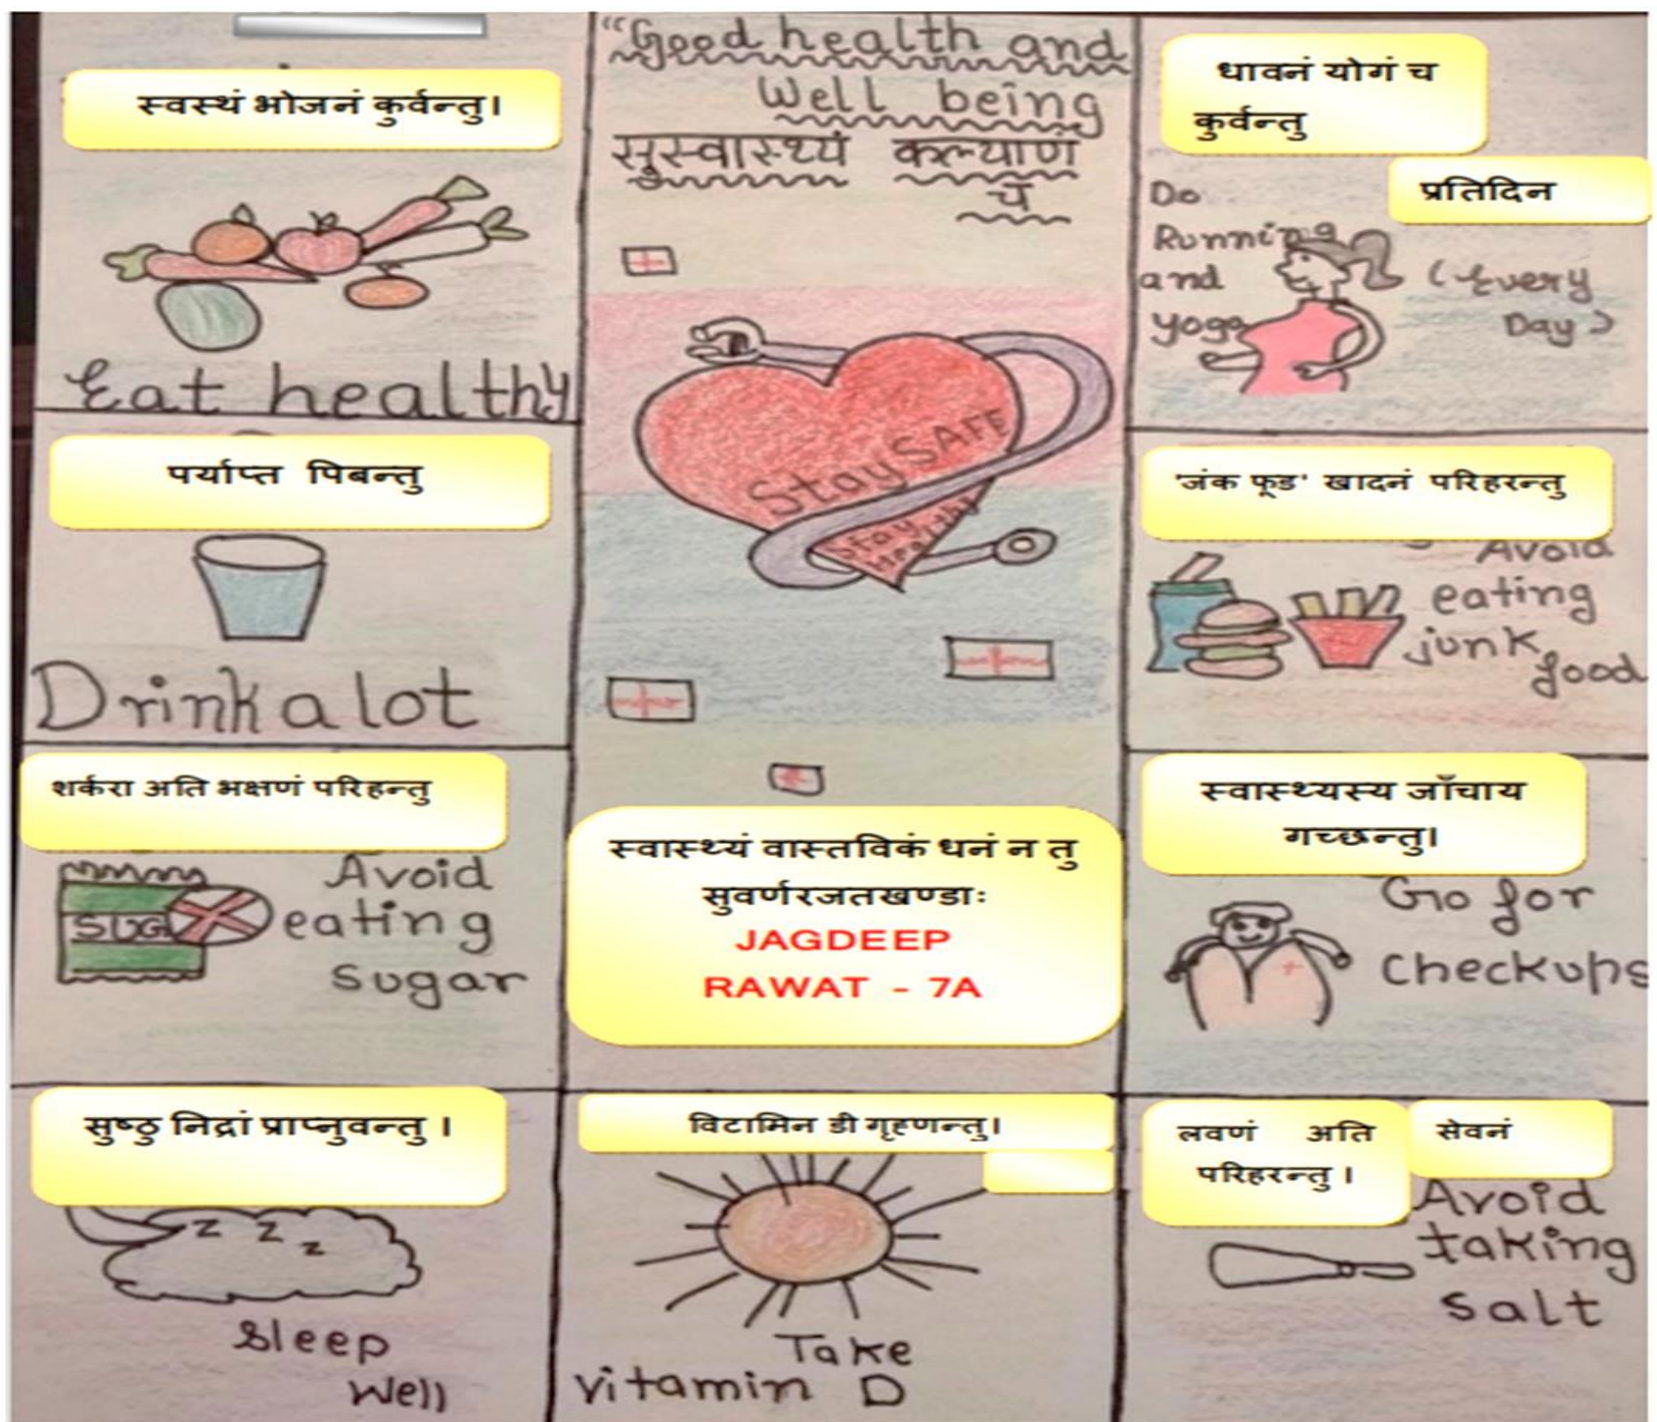 स्वस्थं भोजनं कुर्वन्तु।
Eat healthy
पर्याप्त पिबन्तु
Drink a lot
शर्करा अति भक्षणं परिहन्तु
SUG
Avoid
eating
sugar
सुष्ठु निद्रां प्राप्नुवन्तु ।
z z z
Sleep
Well
“Good health and
Well being
सुस्वास्थ्यं कल्याणं
च
Stay SAFE
Stay
Healthy
स्वास्थ्यं वास्तविकं धनं न तु
सुवर्णरजतखण्डाः
JAGDEEP
RAWAT - 7A
विटामिन डी गृहणन्तु।
Take
vitamin D
धावनं योगं च
कुर्वन्तु
प्रतिदिन
Do
Running
and
yoga
(Every
Day)
'जंक फूड' खादनं परिहरन्तु
Avoid
eating
junk
food
स्वास्थ्यस्य जाँचाय
गच्छन्तु।
Go for
checkups
लवणं अति सेवनं
परिहरन्तु ।
Avoid
taking
salt